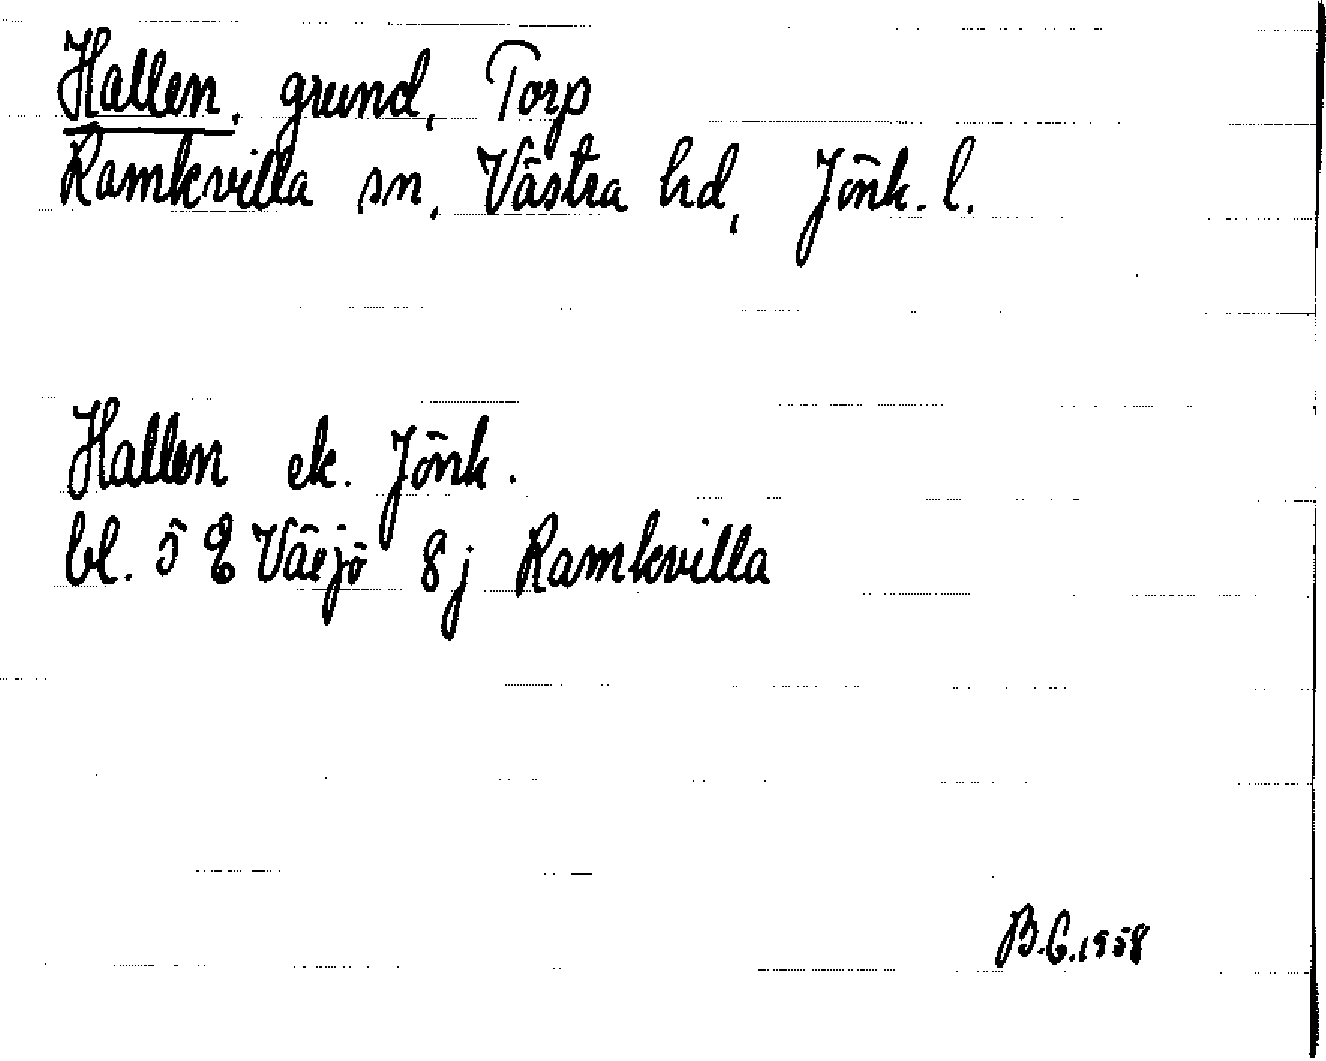 Hallen, grund, Torp
Ramkvilla sn, Västra hd, Jönk. l.
Hallen ek. Jönk.
bl. 5 E Växjö 8 j Ramkvilla
B.G.1958